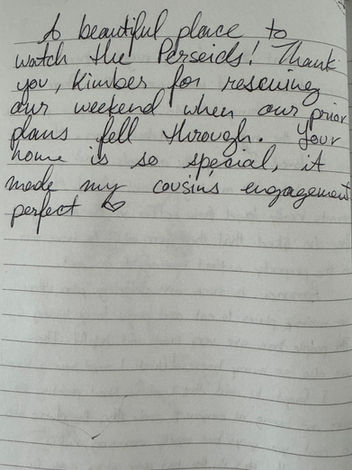 A beautiful place to
watch the Perseids! Thank
you, Kimber for rescuing
our weekend when our prior
plans fell through. Your
home is so special, it
made my cousin's engagement
perfect ♡